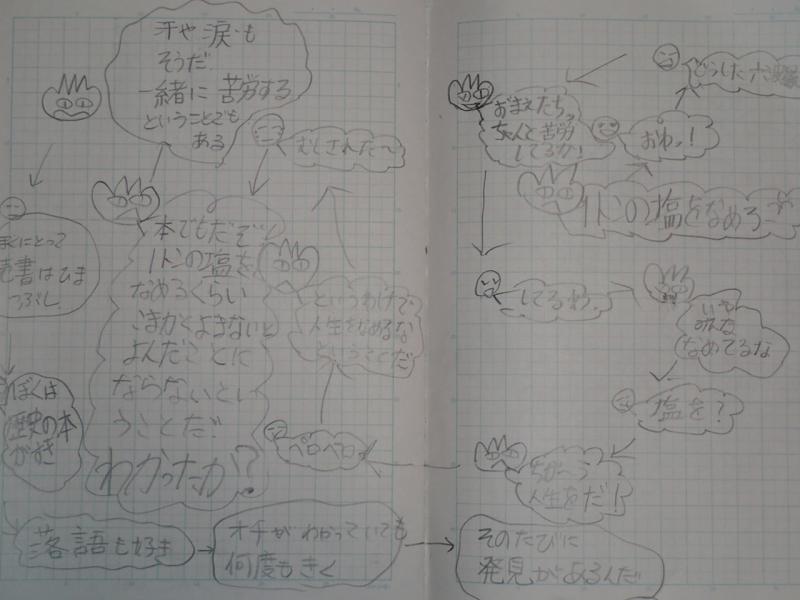 汗や涙も
そうだ。
一緒に苦労する
ということでも
ある
むしされた〜
本でもだぞ!
1トンの塩を
なめるくらい
こまかくよまないと
よんだことに
ならないとい
うことだ!
わかったか?
というわけで
人生をなめるな
ということだ
ペロペロ
ぼくにとって
読書はひま
つぶし
ぼくは
歴史の本
がすき
落語も好き
オチがわかっていても
何度もきく
そのたびに
発見があるんだ
どうした
おまえたち、
ちゃんと苦労
してるか!
おわっ!
1トンの塩をなめろー
してるわ。
いや
みんな
なめてるな
塩を?
ちがーう
人生をだ!